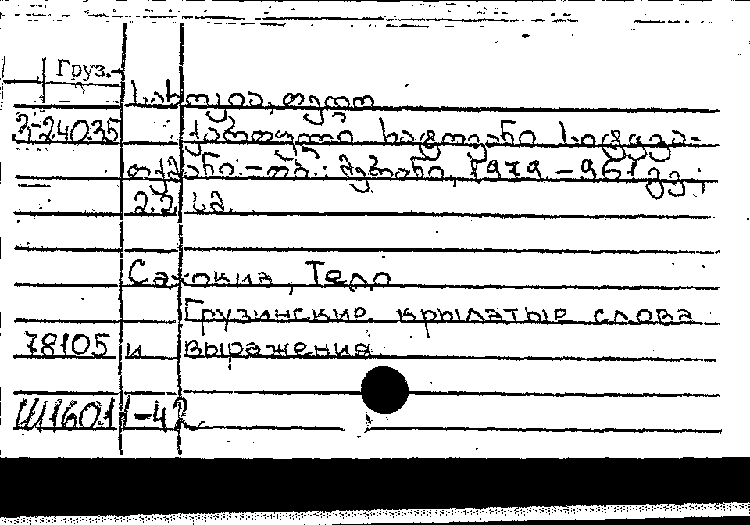 Груз.
სახოკია, თედო
3-24035 ქართული ხატოვანი სიტყვა-
თქმანი. - თბ.: მერანი, 1979 - 961 გვ;
22 სმ.
Сахокиа, Тедо
Грузинские крылатые слова
78105 и выражения
Ш160.11-42